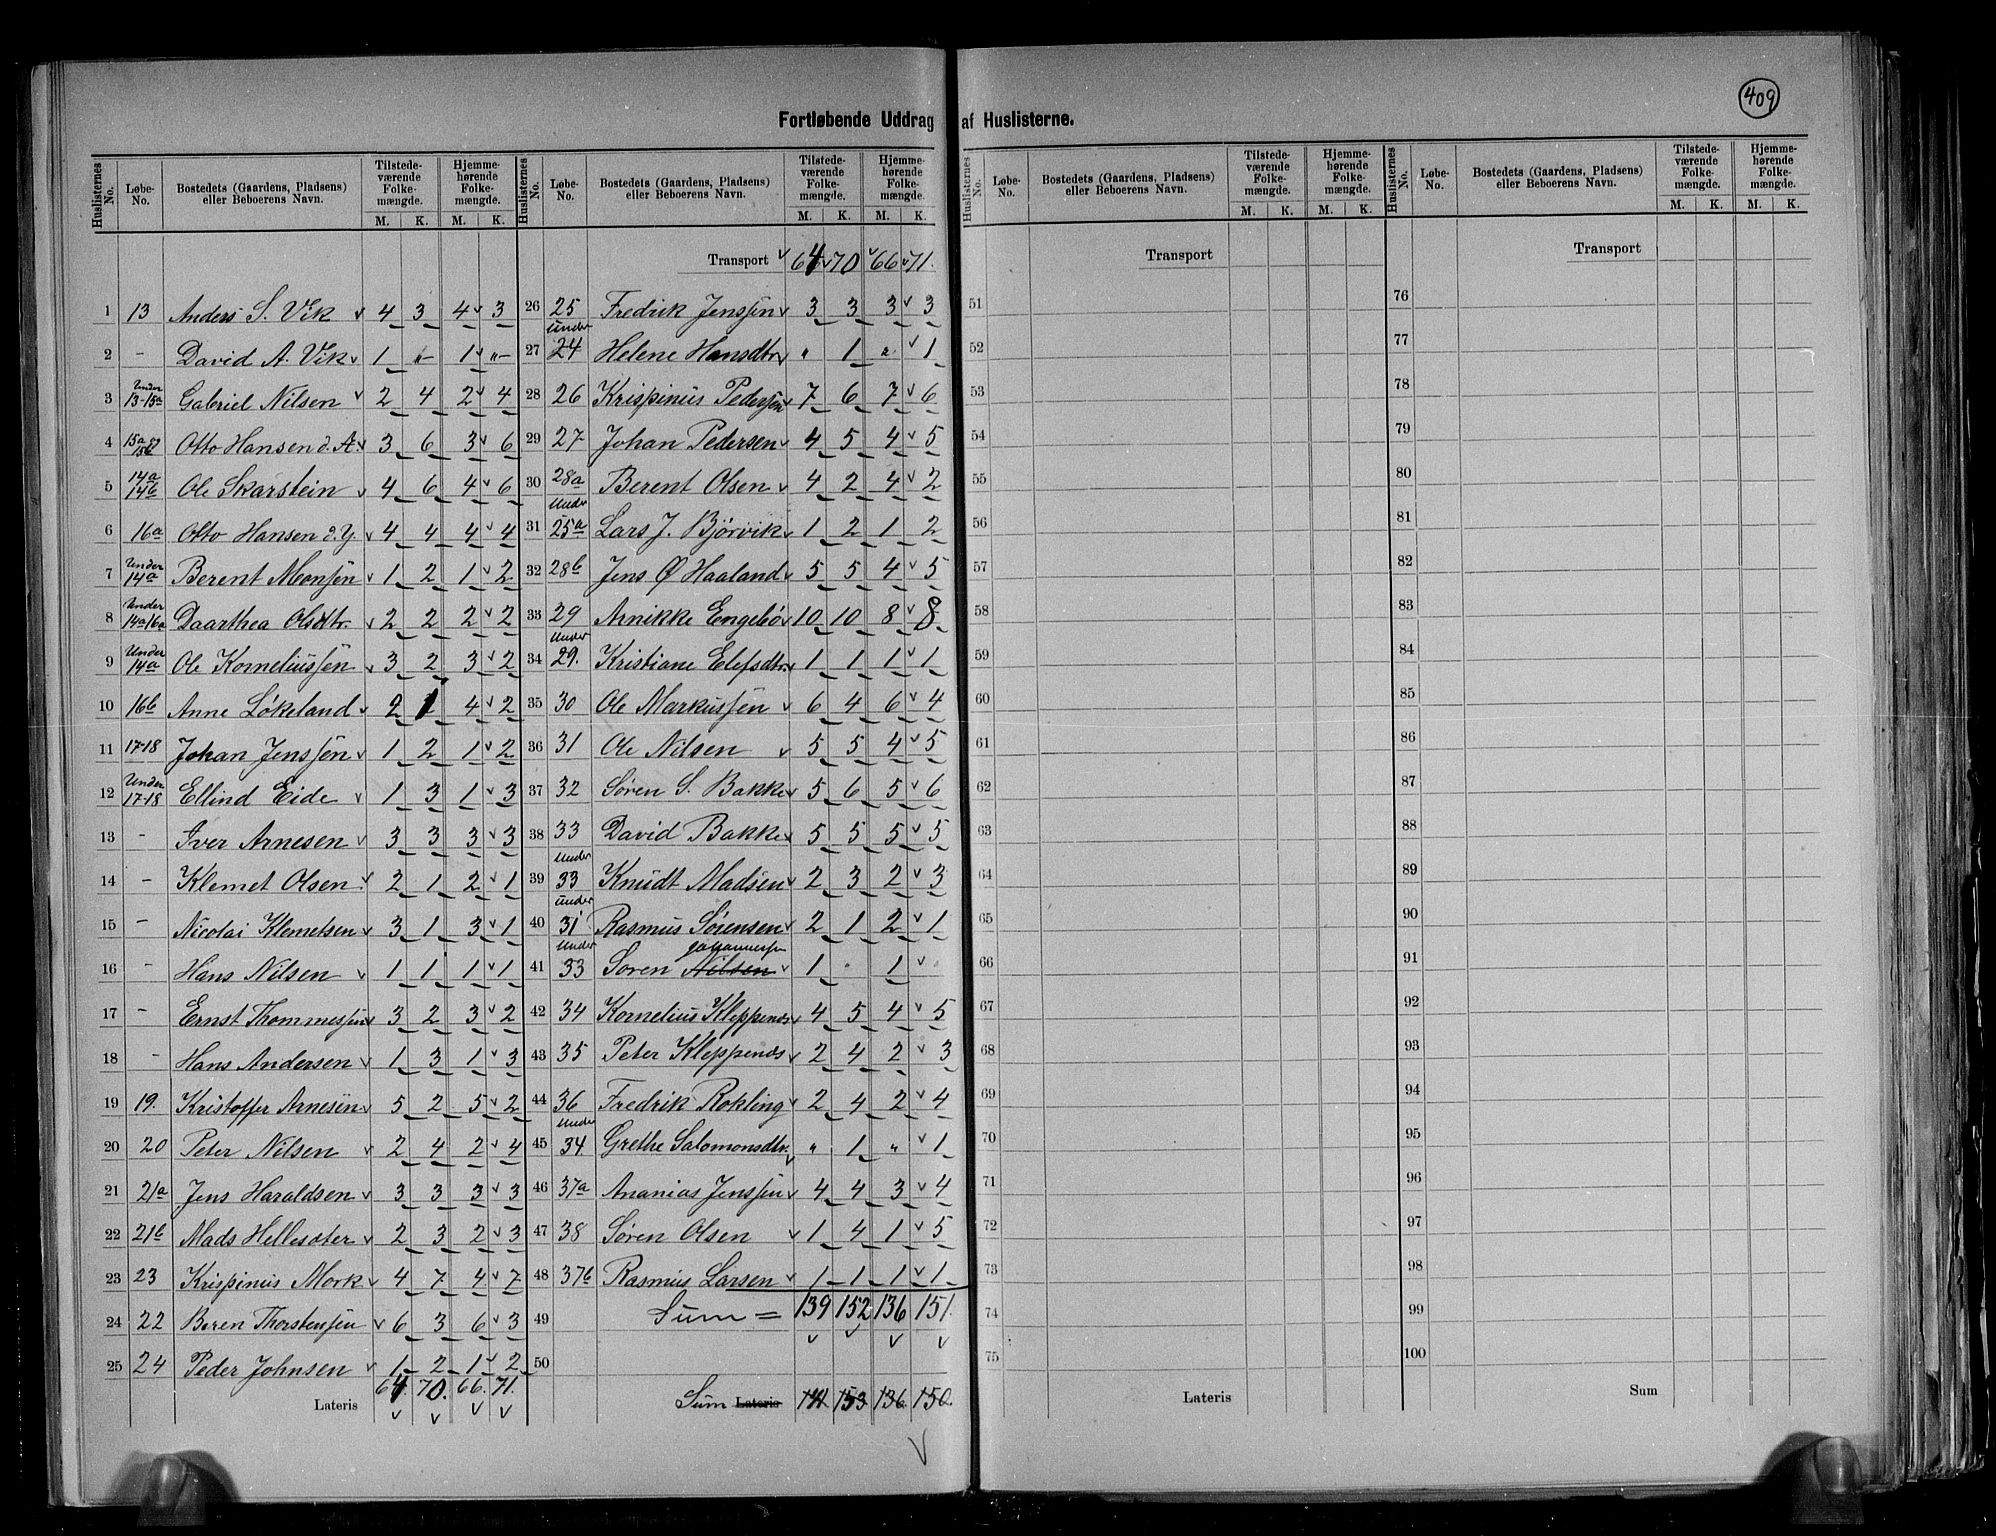 409
Fortløbende Uddrag af Huslisterne.
Huslisternes No. | Løbe-No. | Bostedets (Gaardens, Pladsens) eller Beboerens Navn. | Tilstedeværende Folkemængde. M. K. | Hjemmehørende Folkemængde. M. K.
1 13 Anders S. Vik 4 3 4 3
2 - David A. Vik 1 - 1 -
3 Under 13-15a Gabriel Nilsen 2 4 2 4
4 15a og 15b Otto Hansen d. Æ. 3 6 3 6
5 14a 14b Ole Skarstein 4 6 4 6
6 16a Otto Hansen d. Y. 4 4 4 4
7 Under 14a Berent Monsen 1 2 1 2
8 Under 14a16a Daarthea Olsdtr. 2 2 2 2
9 Under 14a Ole Korneliussen 3 2 3 2
10 16b Anne Løkeland 2 1 4 2
11 17-18 Johan Jenssen 1 2 1 2
12 Under 17-18 Ellind Eide 1 3 1 3
13 - Iver Arnesen 3 3 3 3
14 - Klemet Olsen 2 1 2 1
15 - Nicolai Klemetsen 3 1 3 1
16 - Hans Nilsen 1 1 1 1
17 - Ernst Thommessen 3 2 3 2
18 - Hans Andersen 1 3 1 3
19 19. Kristoffer Arnesen 5 2 5 2
20 20 Peter Nilsen 2 4 2 4
21 21a Jens Haraldsen 3 3 3 3
22 21b Mads Hellesæter 2 3 2 3
23 23 Krispinus Mork 4 7 4 7
24 22 Beren Thorstensen 6 3 6 3
25 24 Peder Johnsen 1 2 1 2
Lateris 64 70. 66. 71.
Huslisternes No. | Løbe-No. | Bostedets (Gaardens, Pladsens) eller Beboerens Navn. | Tilstedeværende Folkemængde. M. K. | Hjemmehørende Folkemængde. M. K.
Transport 64 70 66 71.
26 25 Fredrik Jenssen 3 3 3 3
27 under 24 Helene Hansdtr " 1 " 1
28 26 Krispinus Pedersen 7 6 7 6
29 27 Johan Pedersen 4 5 4 5
30 28a Berent Olsen 4 2 4 2
31 Under 25a Lars J. Bjørvik 1 2 1 2
32 28b Jens Ø Haaland 5 5 4 5
33 29 Arnikke Engebø 10 10 8 8
34 Under 29. Kristiane Elefsdtr 1 1 1 1
35 30 Ole Markussen 6 4 6 4
36 31 Ole Nilsen 5 5 4 5
37 32 Søren S. Bakke 5 6 5 6
38 33 David Bakke 5 5 5 5
39 Under 33 Knudt Madsen 2 3 2 3
40 under 31 Rasmus Sørensen 2 1 2 1
41 Under 33 Søren Nilsen Johannessen 1 1
42 34 Kornelius Kleppenæs 4 5 4 5
43 35 Peter Kleppenæs 2 4 2 3
44 36 Fredrik Rokling 2 4 2 4
45 Under 34 Grethe Salomonsdtr. " 1 " 1
46 37a Ananias Jenssen 4 4 3 4
47 38 Søren Olsen 1 4 1 5
48 37b Rasmus Larsen 1 1 1 1
49 Sum = 139 152 136 151.
50
Sum Lateris 141 153 136. 150.
Huslisternes No. | Løbe-No. | Bostedets (Gaardens, Pladsens) eller Beboerens Navn. | Tilstedeværende Folkemængde. M. K. | Hjemmehørende Folkemængde. M. K.
Transport
51
52
53
54
55
56
57
58
59
60
61
62
63
64
65
66
67
68
69
70
71
72
73
74
75
Lateris
Huslisternes No. | Løbe-No. | Bostedets (Gaardens, Pladsens) eller Beboerens Navn. | Tilstedeværende Folkemængde. M. K. | Hjemmehørende Folkemængde. M. K.
Transport
76
77
78
79
80
81
82
83
84
85
86
87
88
89
90
91
92
93
94
95
96
97
98
99
100
Sum